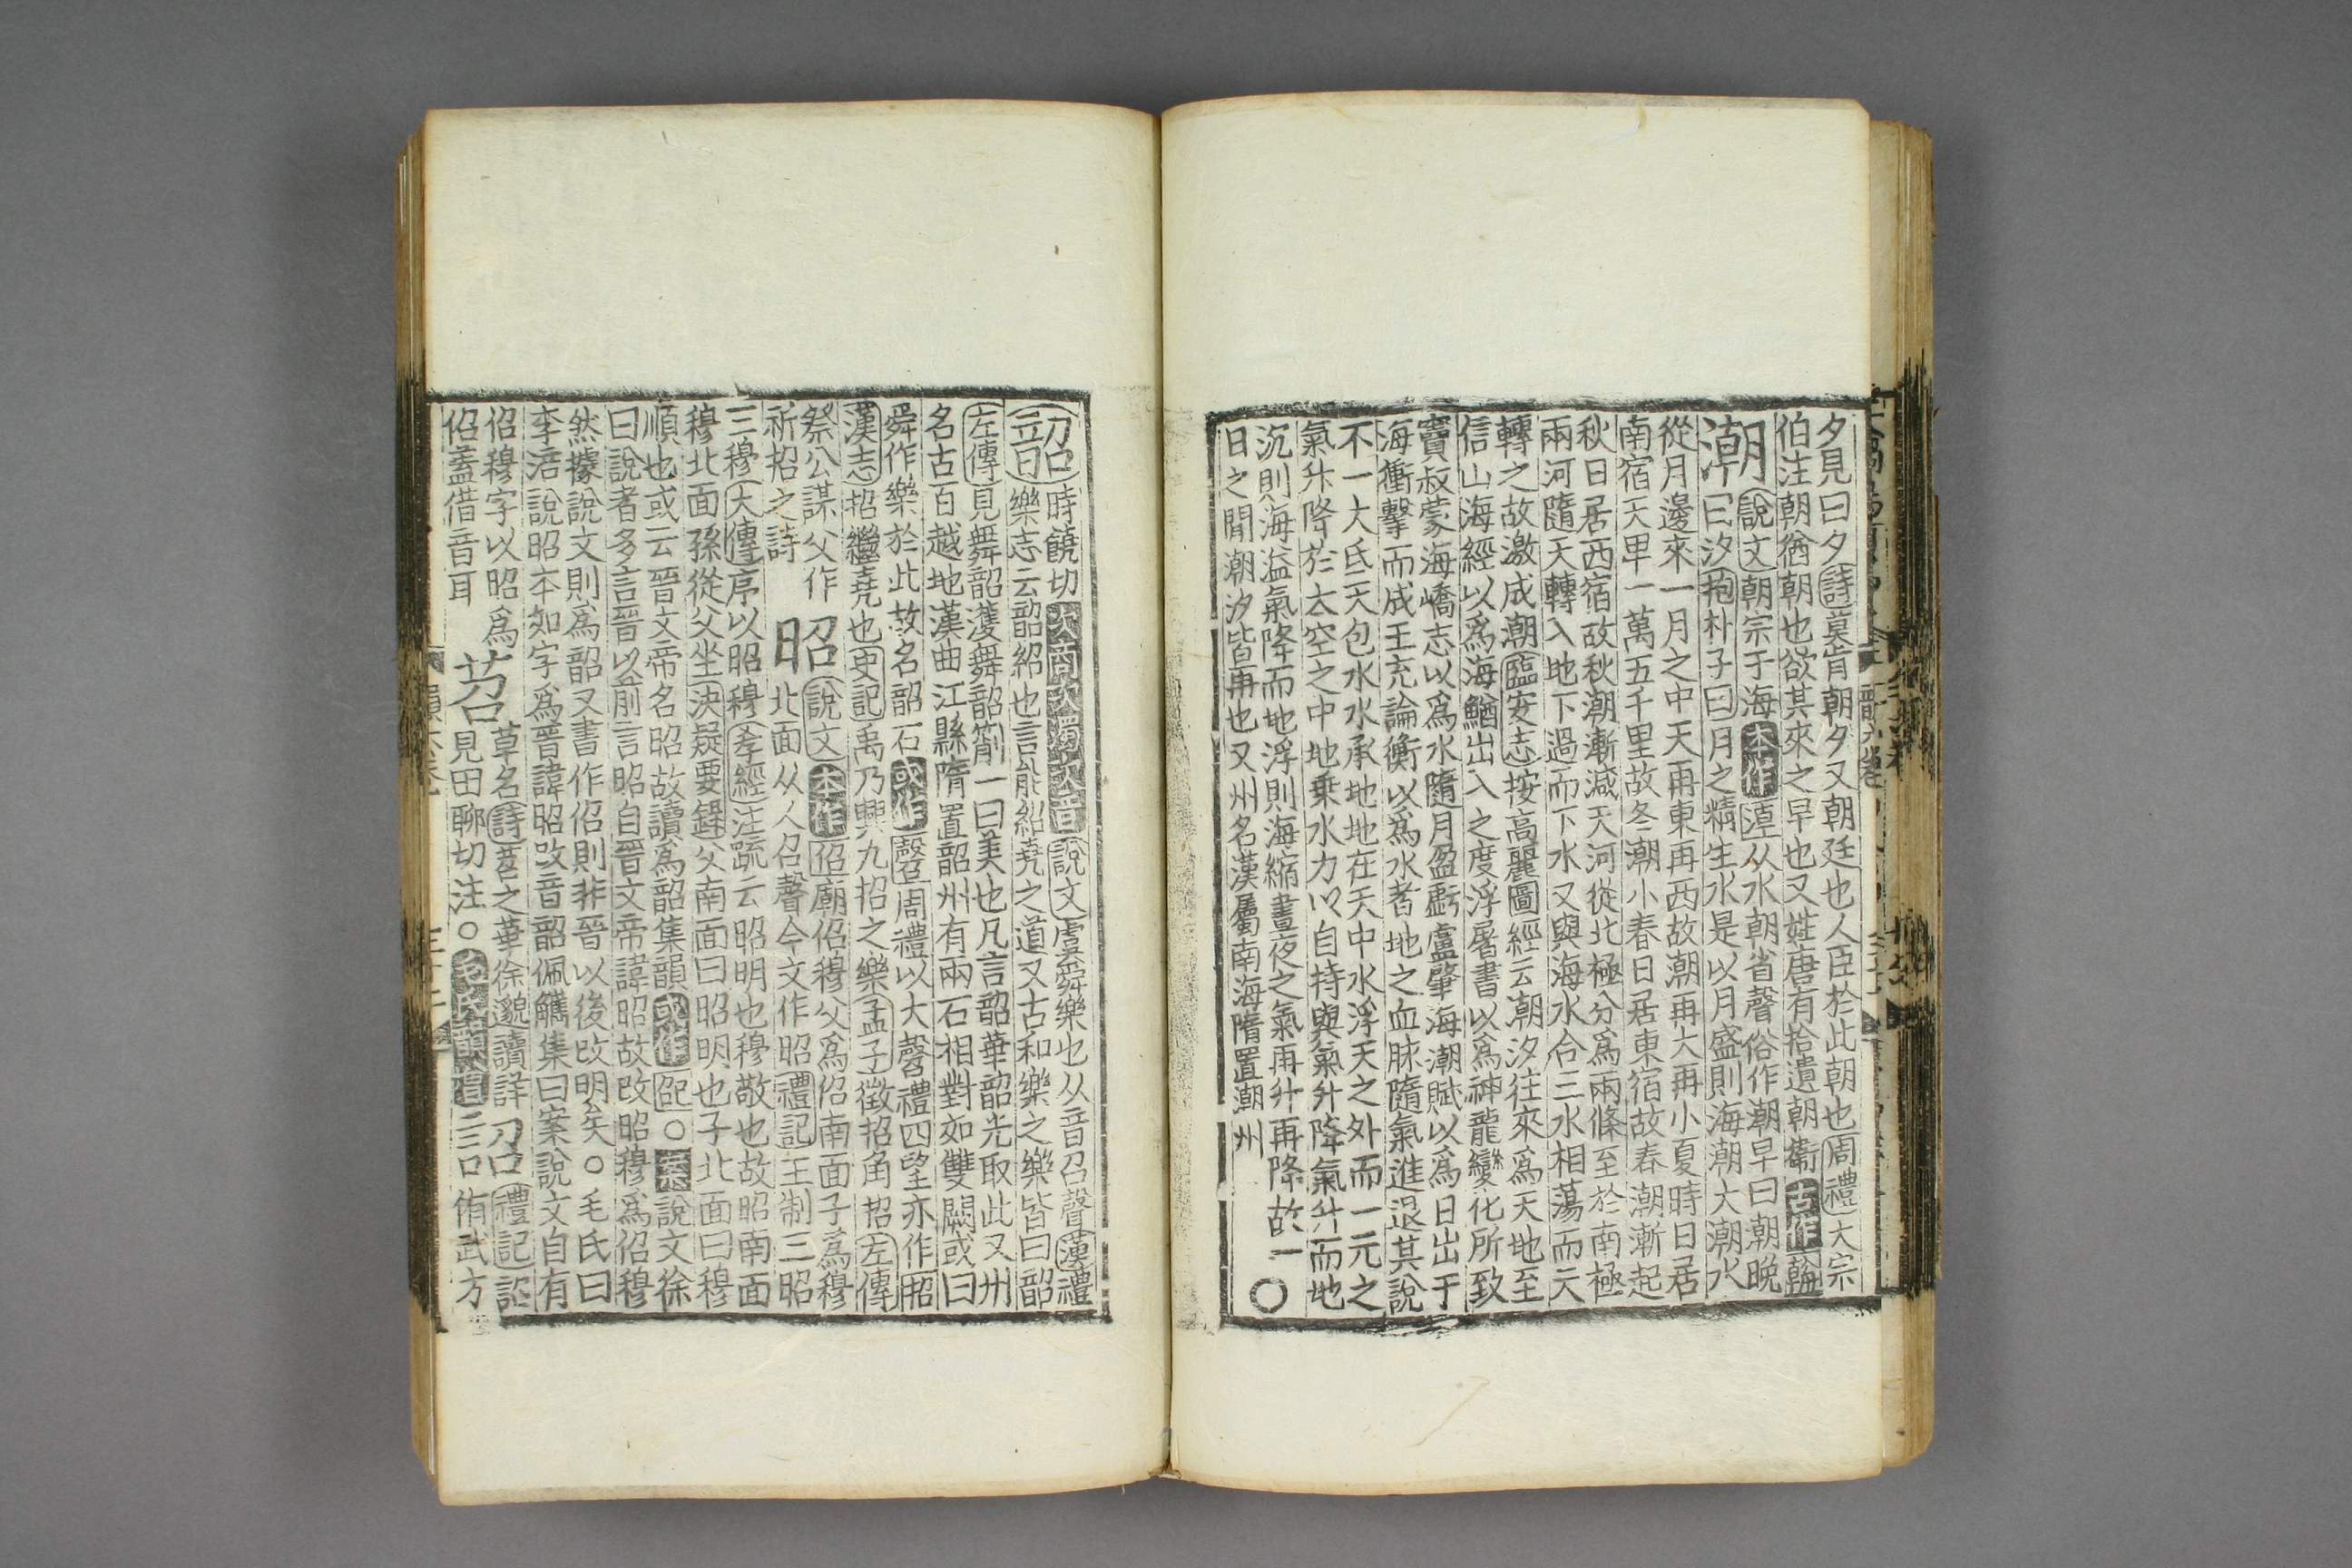 夕見曰夕詩莫肯朝夕又朝廷也人臣於此朝也周禮大宗
伯注朝猶朝也欲其來之早也又姓唐有拾遺朝衡古作
潮說文朝宗于海本作淖从水朝省聲俗作潮早曰朝晩
曰汐抱朴子曰月之精生水是以月盛則海潮大潮水
從月邊來一月之中天再東再西故潮再大再小夏時日居
南宿天𤰞一萬五千里故冬潮小春日居東宿故春潮漸起
秋日居西宿故秋潮漸減天河從北極分爲兩條至於南極
兩河隨天轉入地下過而下水又與海水合三水相蕩而天
轉之故激成潮臨安志按高麗圖經云朝汐往來爲天地至
信山海經以爲海鰌出入之度浮屠書以爲神龍變化所致
竇叔蒙海嶠志以爲水隨月盈虧盧肇海潮賦以爲日出于
海衝擊而成王充論衡以爲水者地之血脉隨氣進退其說
不一大氐天包水水承地地在天中水浮天之外而一元之
氣升降於太空之中地乗水力以自持與氣升降氣升而地
沉則海溢氣降而地浮則海縮晝夜之氣再升再降故一
日之閒潮汐皆再也又州名漢屬南海隋置潮州○
韶時饒切次商次濁次音說文虞舜樂也从音召聲漢禮
樂志云韶紹也言能紹堯之道又古和樂之樂皆曰韶
左傳見舞韶濩舞韶箾一曰美也凡言韶華韶光取此又州
名古百越地漢曲江縣隋置韶州有兩石相對如雙闕或曰
舜作樂於此故名韶石或作㲈周禮以大㲈禮四望亦作招
漢志招繼堯也史記禹乃興九招之樂孟子徵招角招左傳
祭公謀父作祈招之詩昭說文本作佋廟佋穆父爲佋南面子爲穆
北面从人召聲今文作昭禮記王制三昭
三穆大傳序以昭穆孝經注疏云昭明也穆敬也故昭南面
穆北面孫從父坐決疑要録父南面曰昭明也子北面曰穆
順也或云晉文帝名昭故讀爲韶集韻或作𠨒○案說文徐
曰說者多言晉以前言昭自晉文帝諱昭故改昭穆爲佋穆
然據說文則爲韶又書作佋則非晉以後改明矣○毛氏曰
李涪說昭本如字爲晉諱昭改音韶佩觿集曰案說文自有
佋穆字以昭爲佋蓋借音耳苕草名詩苕之華徐邈讀詳刀口禮記註
見田聊切注○毛氏韻增三口侑武方